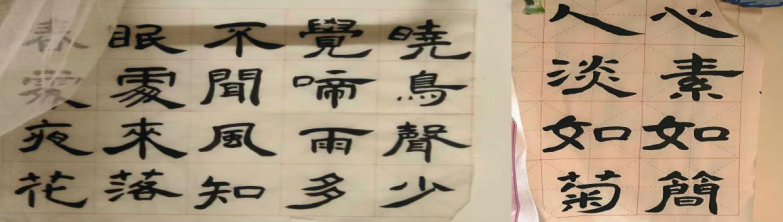 春眠不覺曉
處處聞啼鳥
夜來風雨聲
花落知多少
心素如簡
人淡如菊